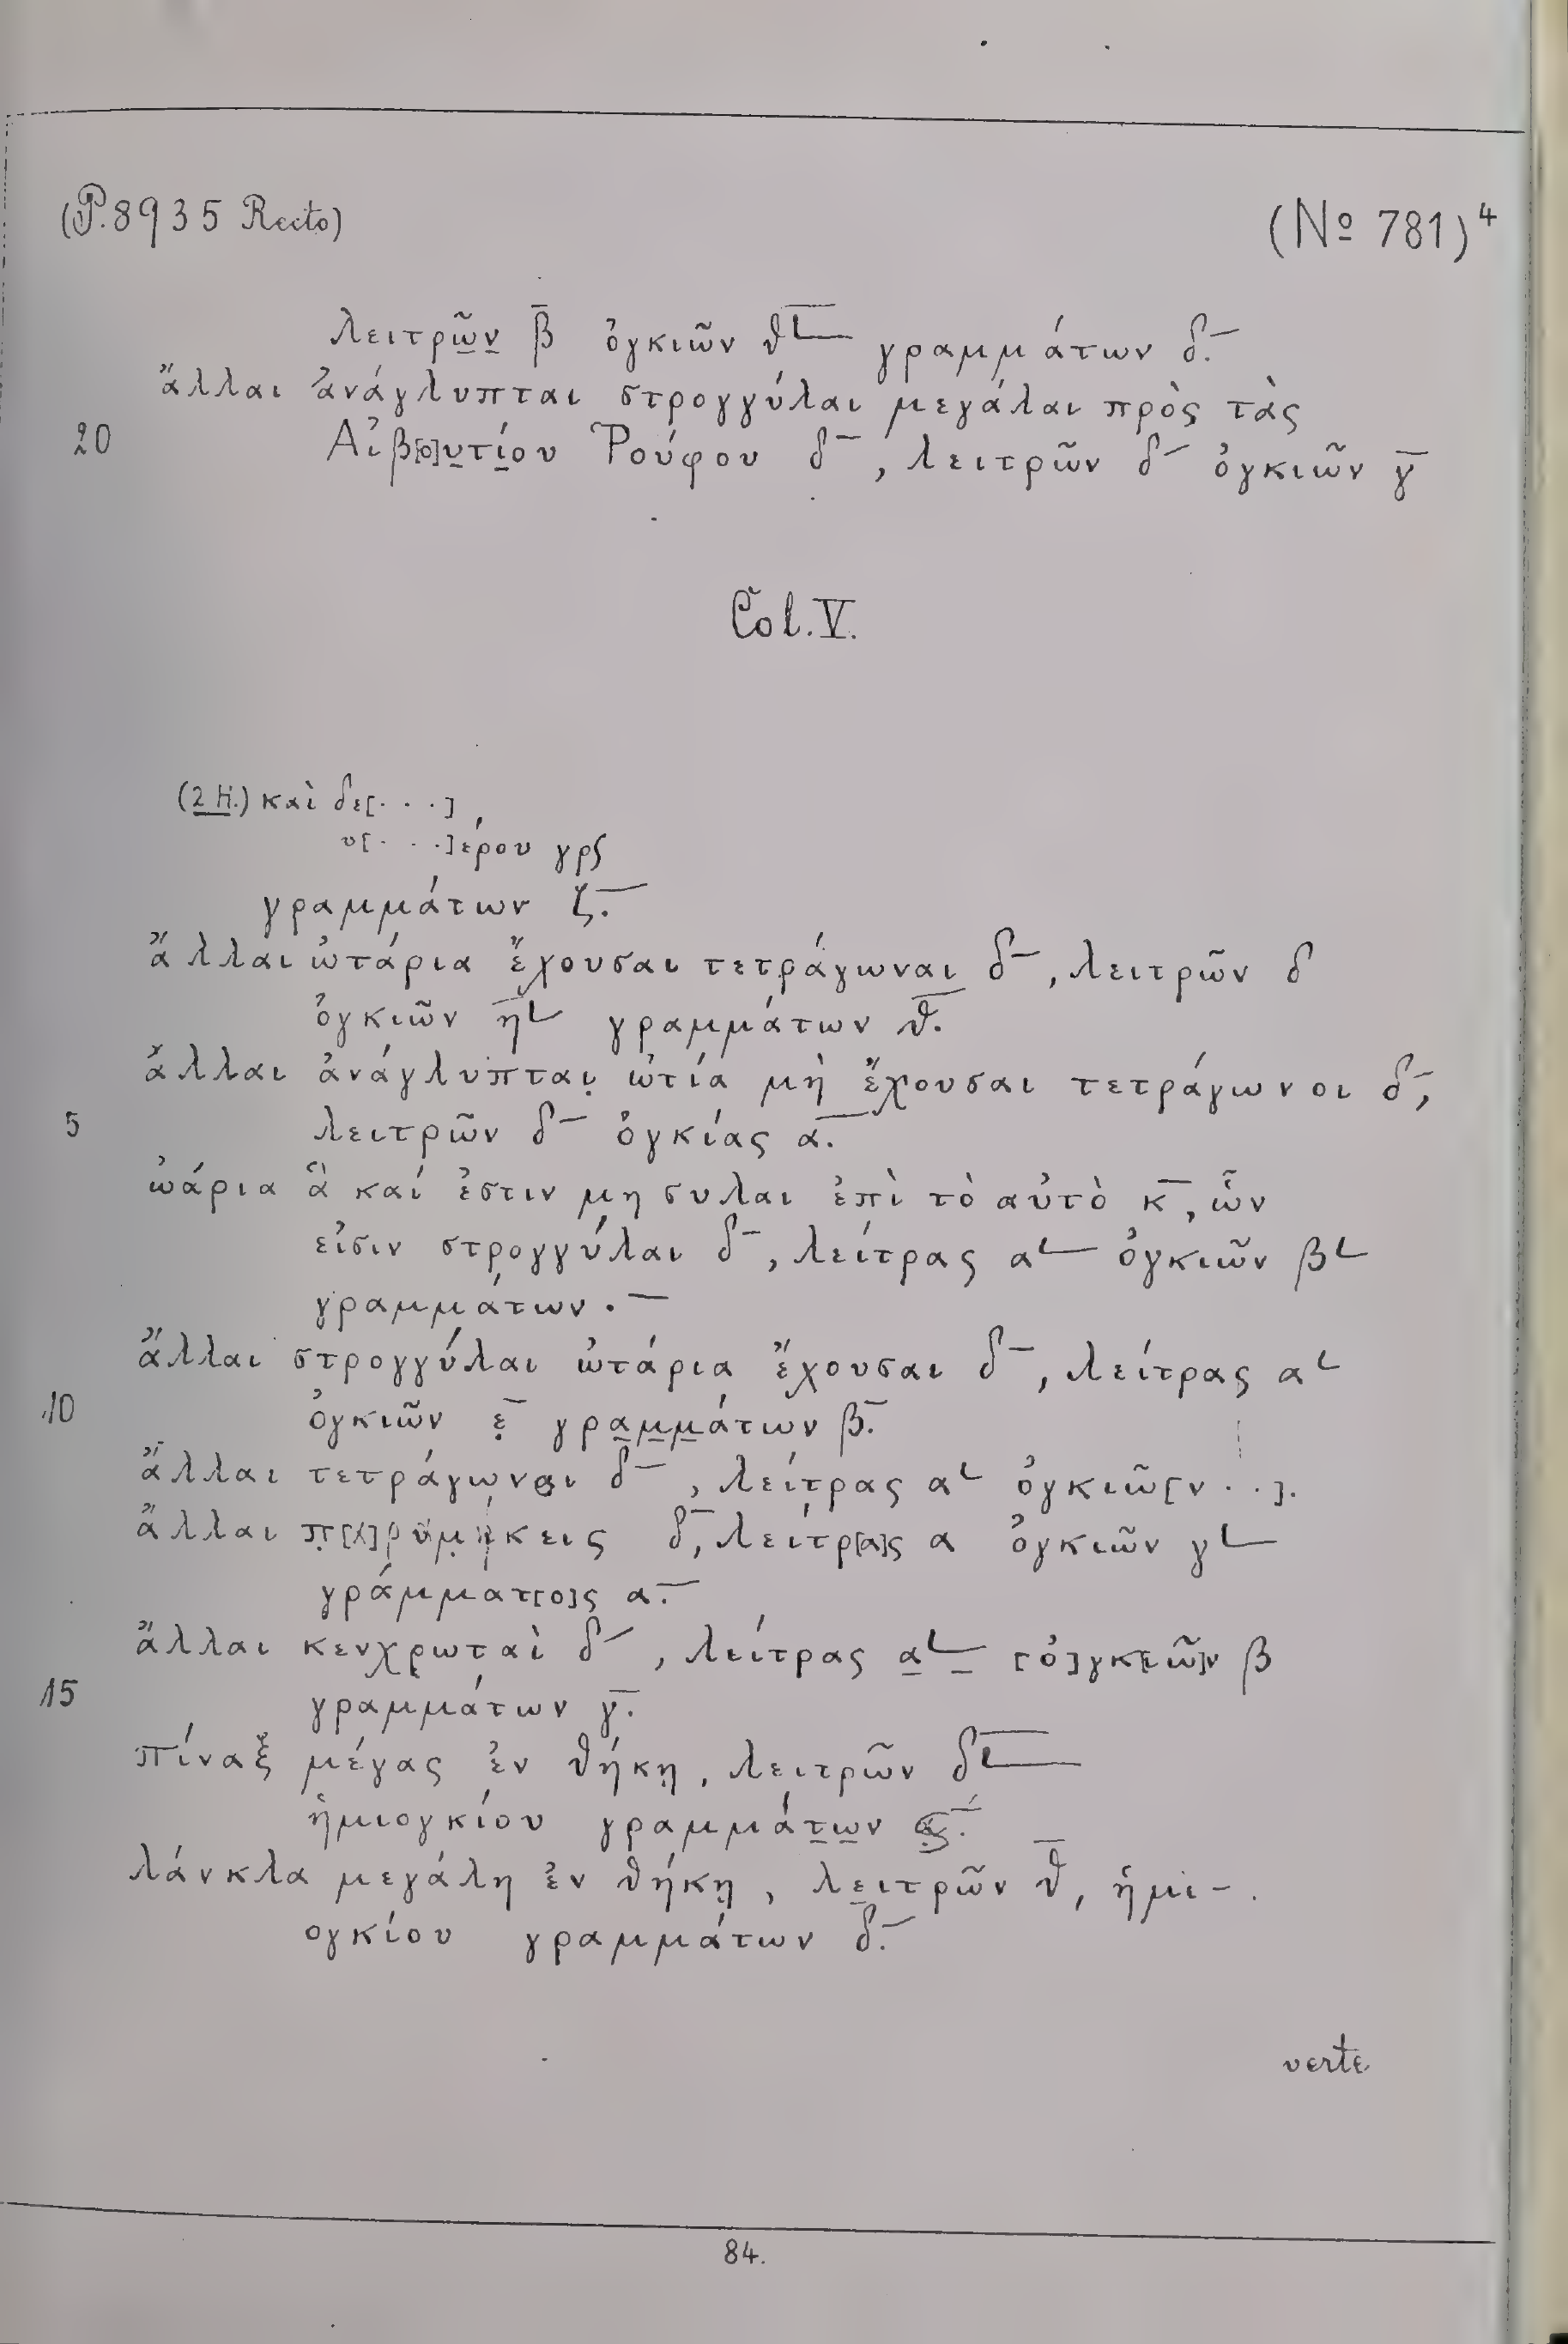 (P. 8935 Recto) (№ 781)⁴
λειτρῶν β̄ ὀγκιῶν θ𐅵 γραμμάτων δ.
ἄλλαι ἀνάγλυπται στρογγύλαι μεγάλαι πρὸς τὰς
20 Αἰβ[ο]υτίου Ῥούφου δ̄, λειτρῶν δ̄ ὀγκιῶν γ̄
Col. V.
(2 H.) καὶ δε[· · ·],
υ[· · ·]έρου γρς
γραμμάτων ζ̄.
ἄλλαι ὠτάρια ἔχουσαι τετράγωναι δ̄, λειτρῶν δ
ὀγκιῶν η̄𐅵 γραμμάτων θ̄.
ἄλλαι ἀνάγλυπται ὠτία μὴ ἔχουσαι τετράγωνοι δ̄,
5 λειτρῶν δ̄ ὀγκίας ᾱ.
ὠάρια ἃ καί ἐστιν μησυλαι ἐπὶ τὸ αὐτὸ κ̄, ὧν
εἰσιν στρογγύλαι δ̄, λείτρας α𐅵 ὀγκιῶν β𐅵
γραμμάτων .̄
ἄλλαι στρογγύλαι ὠτάρια ἔχουσαι δ̄, λείτρας α𐅵
10 ὀγκιῶν ε̣̄ γραμμάτων β̄.
ἄλλαι τετράγωνοι δ̄, λείτρας α𐅵 ὀγκιῶ[ν · ·].
ἄλλαι π̣[α]ραμήκεις δ̄, λείτρ[α]ς α ὀγκιῶν γ𐅵
γράμματ[ο]ς ᾱ.
ἄλλαι κενχρωταὶ δ̄, λείτρας α𐅵 [ὀ]γκ[ιῶ]ν β
15 γραμμάτων γ̄.
πίναξ μέγας ἐν θήκῃ, λειτρῶν δ𐅵
ἡμιογκίου γραμμάτων ς̄.
λάνκλα μεγάλη ἐν θήκῃ, λειτρῶν θ̄, ἡμι-
ογκίου γραμμάτων δ̄.
verte
84.